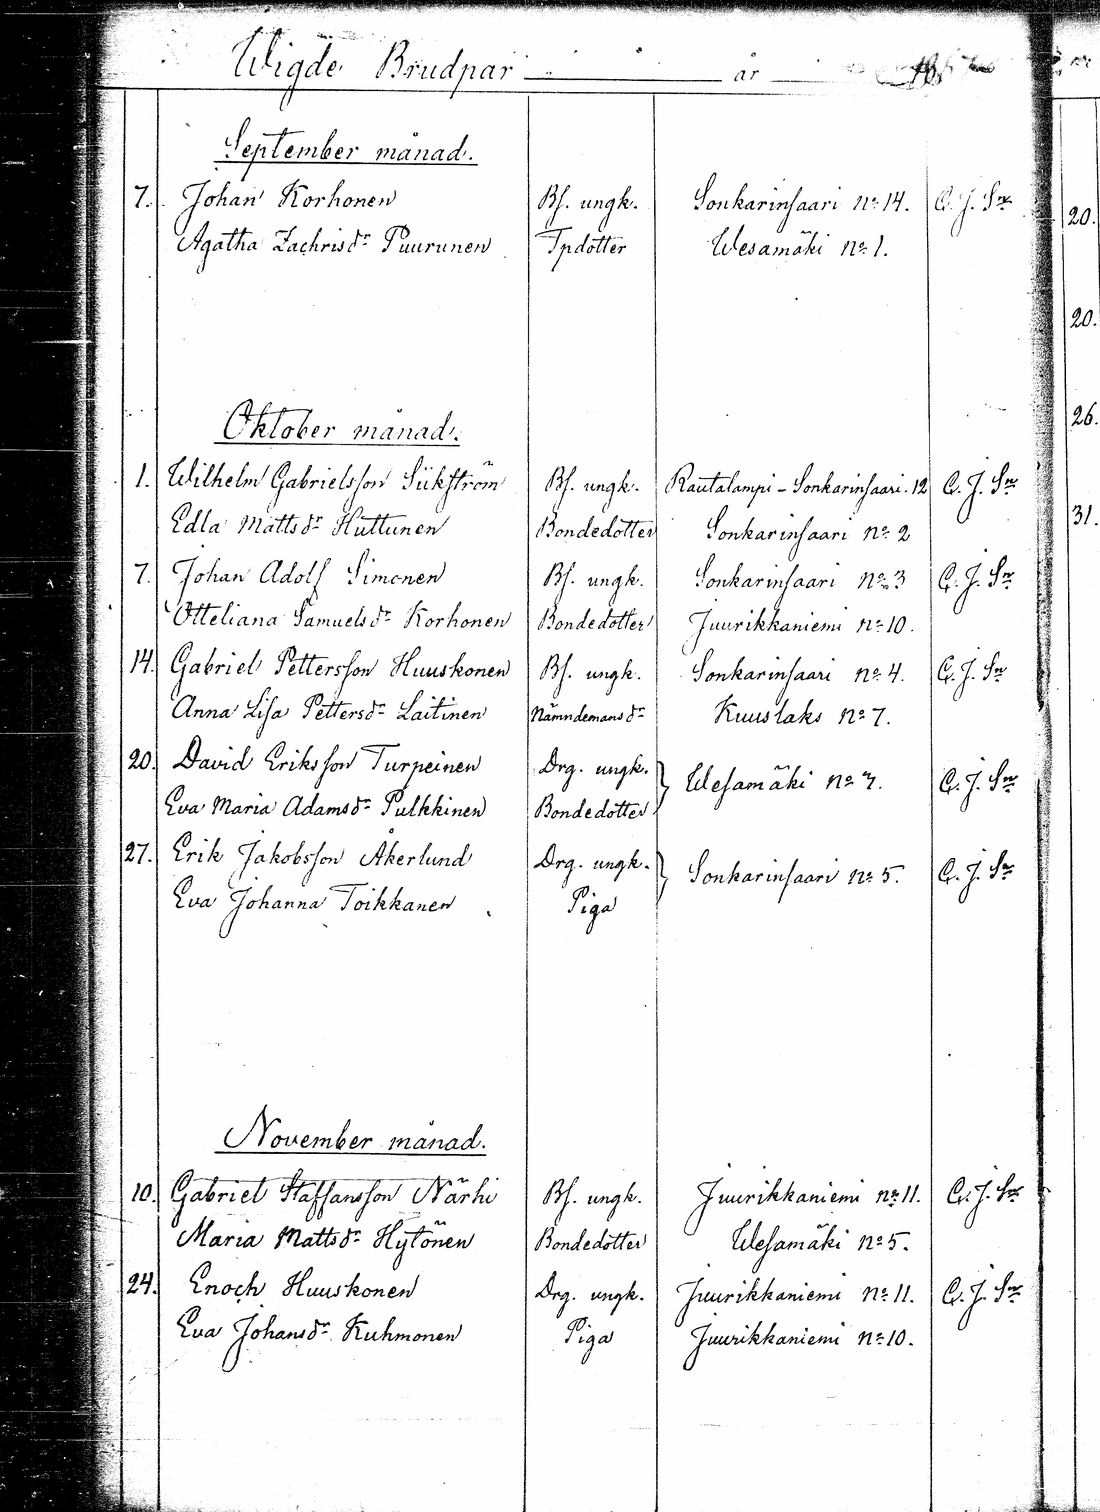 Wigde Brudpar år
September månad.
7. Johan Korhonen Bſ. ungk. Sonkarinſaari no 14. C. J. Sr
Agatha Zachrisdr Puurunen Tpdotter Wesamäki no 1.
20.
20.
Oktober månad.
26.
1. Wilhelm Gabrielsſon Sükſtröm Bſ. ungk. Rautalampi - Sonkarinſaari. 12 C. J. Sr
Edla Mattsdr Huttunen Bondedotter Sonkarinſaari no 2
31.
7. Johan Adolf Simonen Bſ. ungk. Sonkarinſaari no 3 C. J. Sr
Otteliana Samuelsdr Korhonen Bondedotter Juurikkaniemi no 10.
14. Gabriel Petterſſon Huuskonen Bſ. ungk. Sonkarinſaari no 4. C. J. Sr
Anna Liſa Pettersdr Laitinen Nämndemansdr Kuuslaks no 7.
20. David Eriksſon Turpeinen Drg. ungk. } Weſamäki no 7. C. J. Sr
Eva Maria Adamsdr Pulkkinen Bondedotter
27. Erik Jakobsſon Åkerlund Drg. ungk. } Sonkarinſaari no 5. C. J. Sr
Eva Johanna Toikkanen Piga
November månad.
10. Gabriel Staffansſon Närhi Bſ. ungk. Juurikkaniemi no 11. C. J. Sr
Maria Mattsdr Hytönen Bondedotter Weſamäki no 5.
24. Enoch Huuskonen Drg. ungk. Juurikkaniemi no 11. C. J. Sr
Eva Johansdr Kuhmonen Piga Juurikkaniemi no 10.